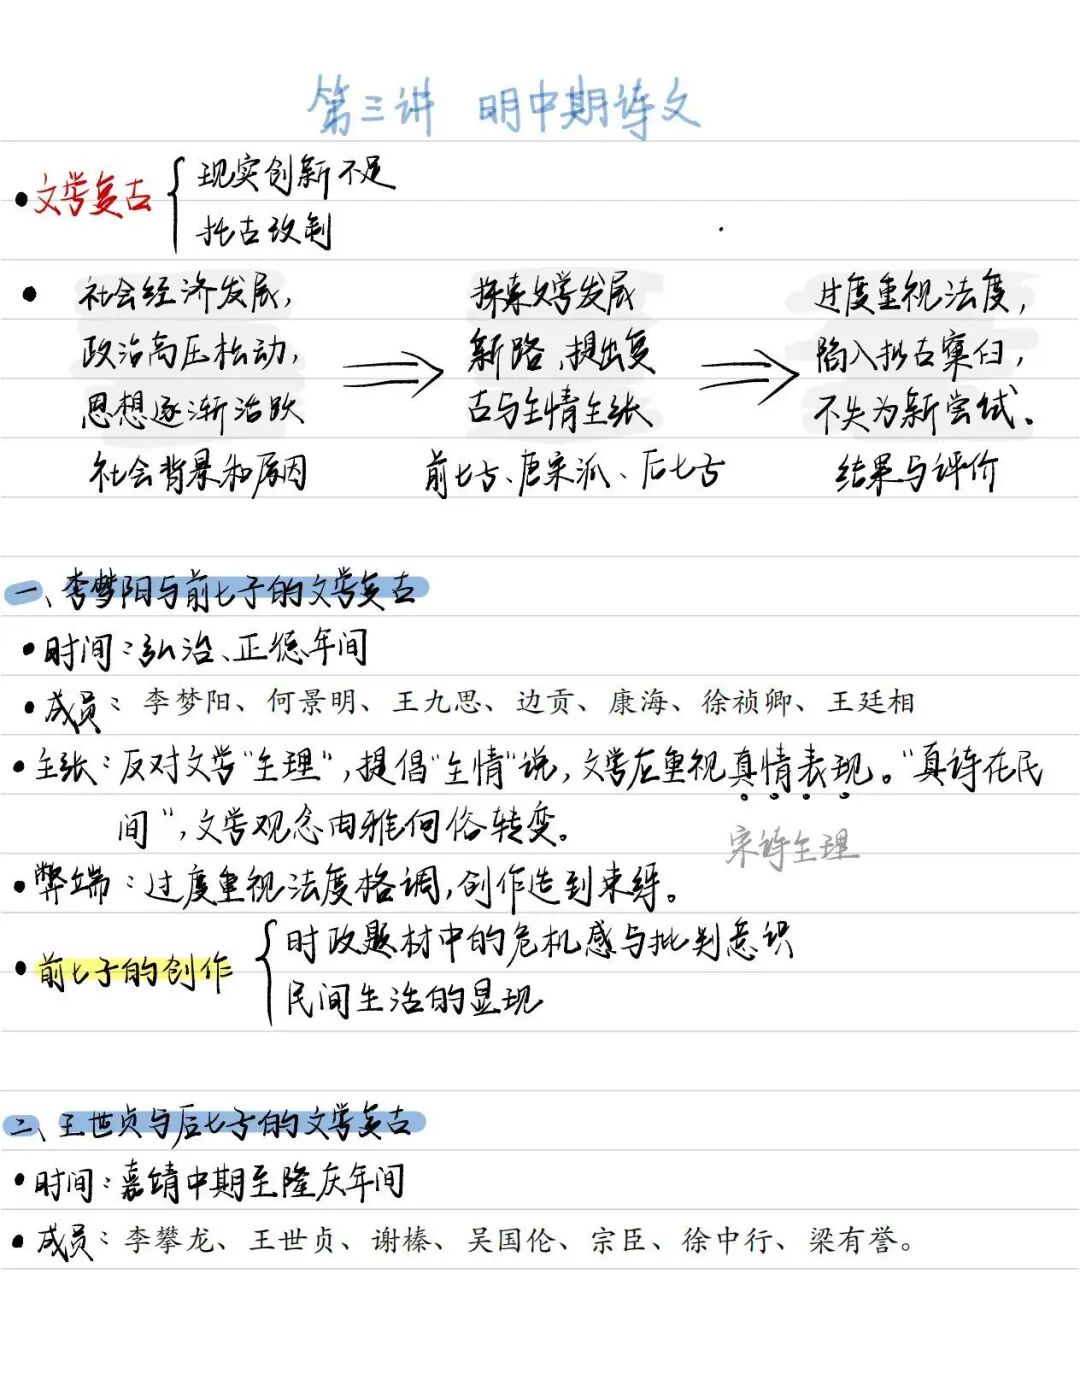 第三讲 明中期诗文
• 文学复古 { 现实创新不足
托古改制
• 社会经济发展,
政治高压松动,
思想逐渐活跃
社会背景和原因
探索文学发展
新路,提出复
古与主情主张
前七子、唐宋派、后七子
过度重视法度,
陷入拟古窠臼,
不失为新尝试。
结果与评价
一、李梦阳与前七子的文学复古
• 时间:弘治、正德年间
• 成员:李梦阳、何景明、王九思、边贡、康海、徐祯卿、王廷相
• 主张:反对文学“主理”,提倡“主情”说,文学应重视真情表现。“真诗在民
间”,文学观念由雅向俗转变。
宋诗主理
• 弊端:过度重视法度格调,创作造到束缚。
• 前七子的创作 { 时政题材中的危机感与批判意识
民间生活的显现
二、王世贞与后七子的文学复古
• 时间:嘉靖中期至隆庆年间
• 成员:李攀龙、王世贞、谢榛、吴国伦、宗臣、徐中行、梁有誉。